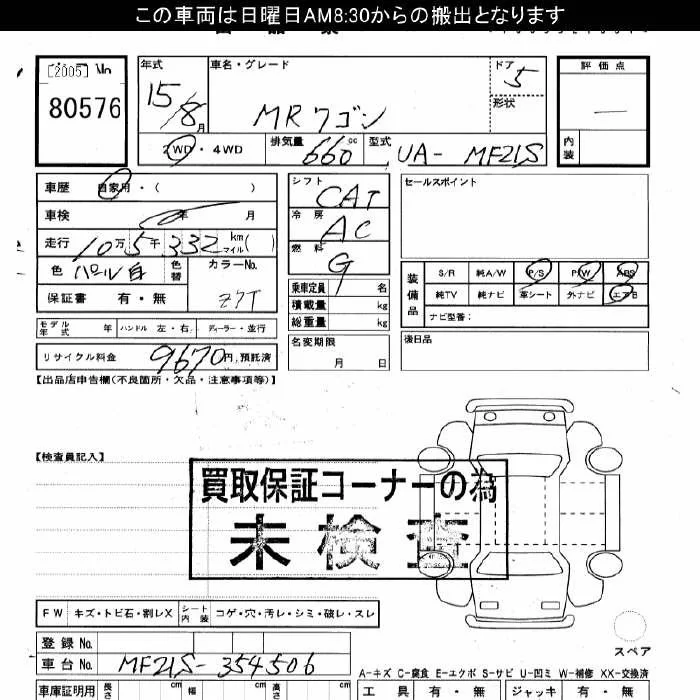 この車両は日曜日AM8:30からの搬出となります
[2005] No
80576
年式 車名・グレード ドア 5 評価点
15/8月 MRワゴン 形状 —
2WD・4WD 排気量 660 cc 型式 UA- MF21S 内装
車歴 自家用・( )
車検 年 月
走行 10万5千332 km マイル( )
色 パール白 色替 カラーNo.
保証書 有・無 Z7T
シフト CAT
冷房 AC
燃料 G
乗車定員 名
積載量 kg
総重量 kg
セールスポイント
装備品 S/R 純A/W P/S P/W ABS
純TV 純ナビ 革シート 外ナビ エアB
ナビ型番:
モデル年式 年 ハンドル 左・右 ディーラー・並行
リサイクル料金 9670円,預託済
名変期限
月 日
後日品
【出品店申告欄(不良箇所・欠品・注意事項等)】
【検査員記入】
買取保証コーナーの為
未検査
FW キズ・トビ石・割レX シート内装 コゲ・穴・汚レ・シミ・破レ・スレ
登録 No.
車台 No. MF21S-354506
スペア
A-キズ C-腐食 E-エクボ S-サビ U-凹ミ W-補修 XX-交換済
車庫証明用 長さ cm 幅 cm 高さ cm
工具 有・無 ジャッキ 有・無